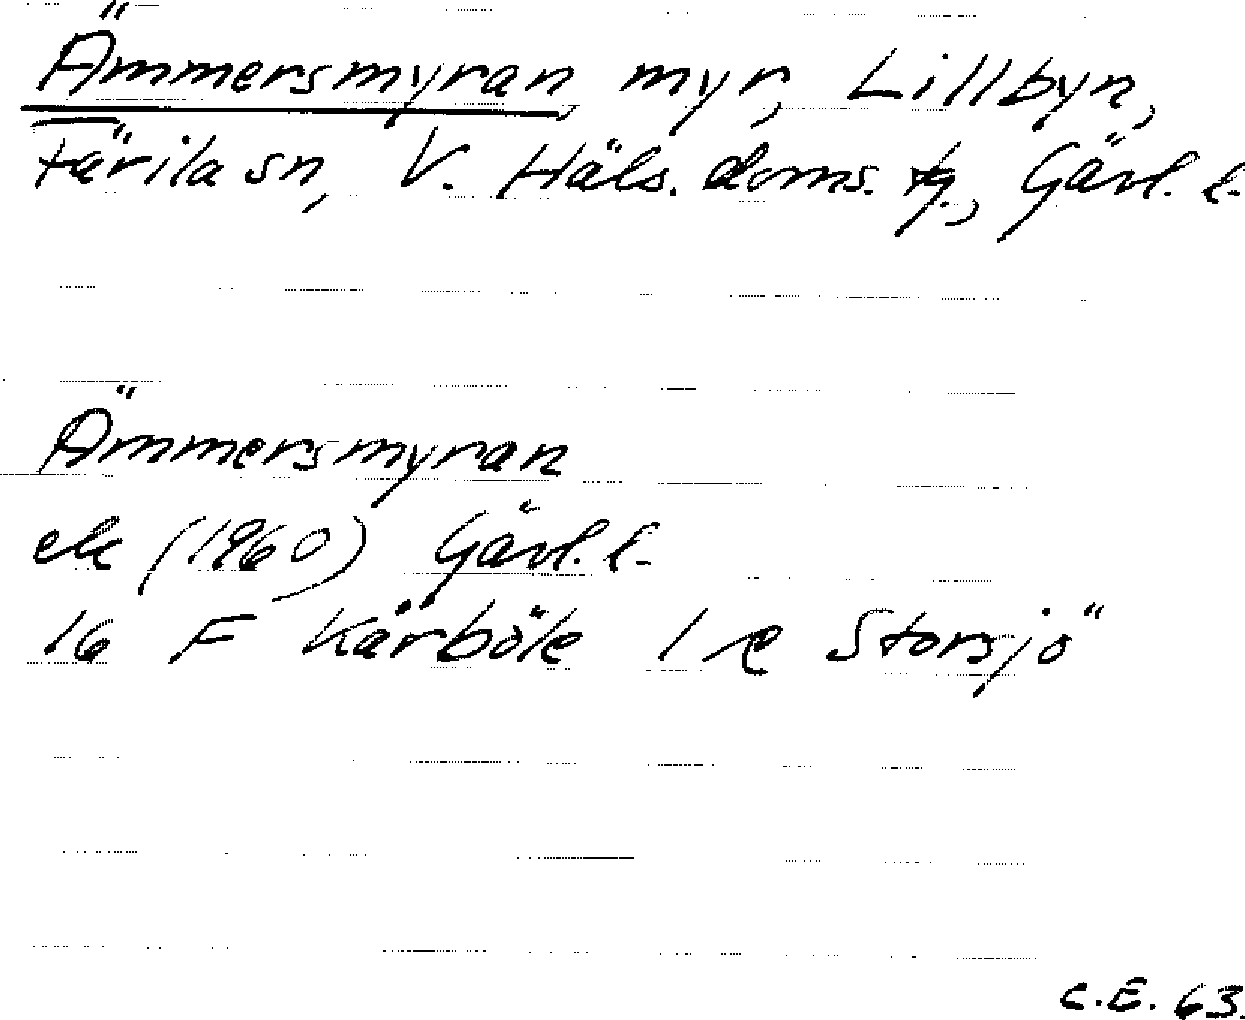 Ämmersmyran, myr, Lillbyn,
Färila sn, V. Häls. doms. tg., Gävl. l.
Ämmersmyran
ek (1960) Gävl. l.
16 F Kårböle 1 e Storsjö
C.E. 63.